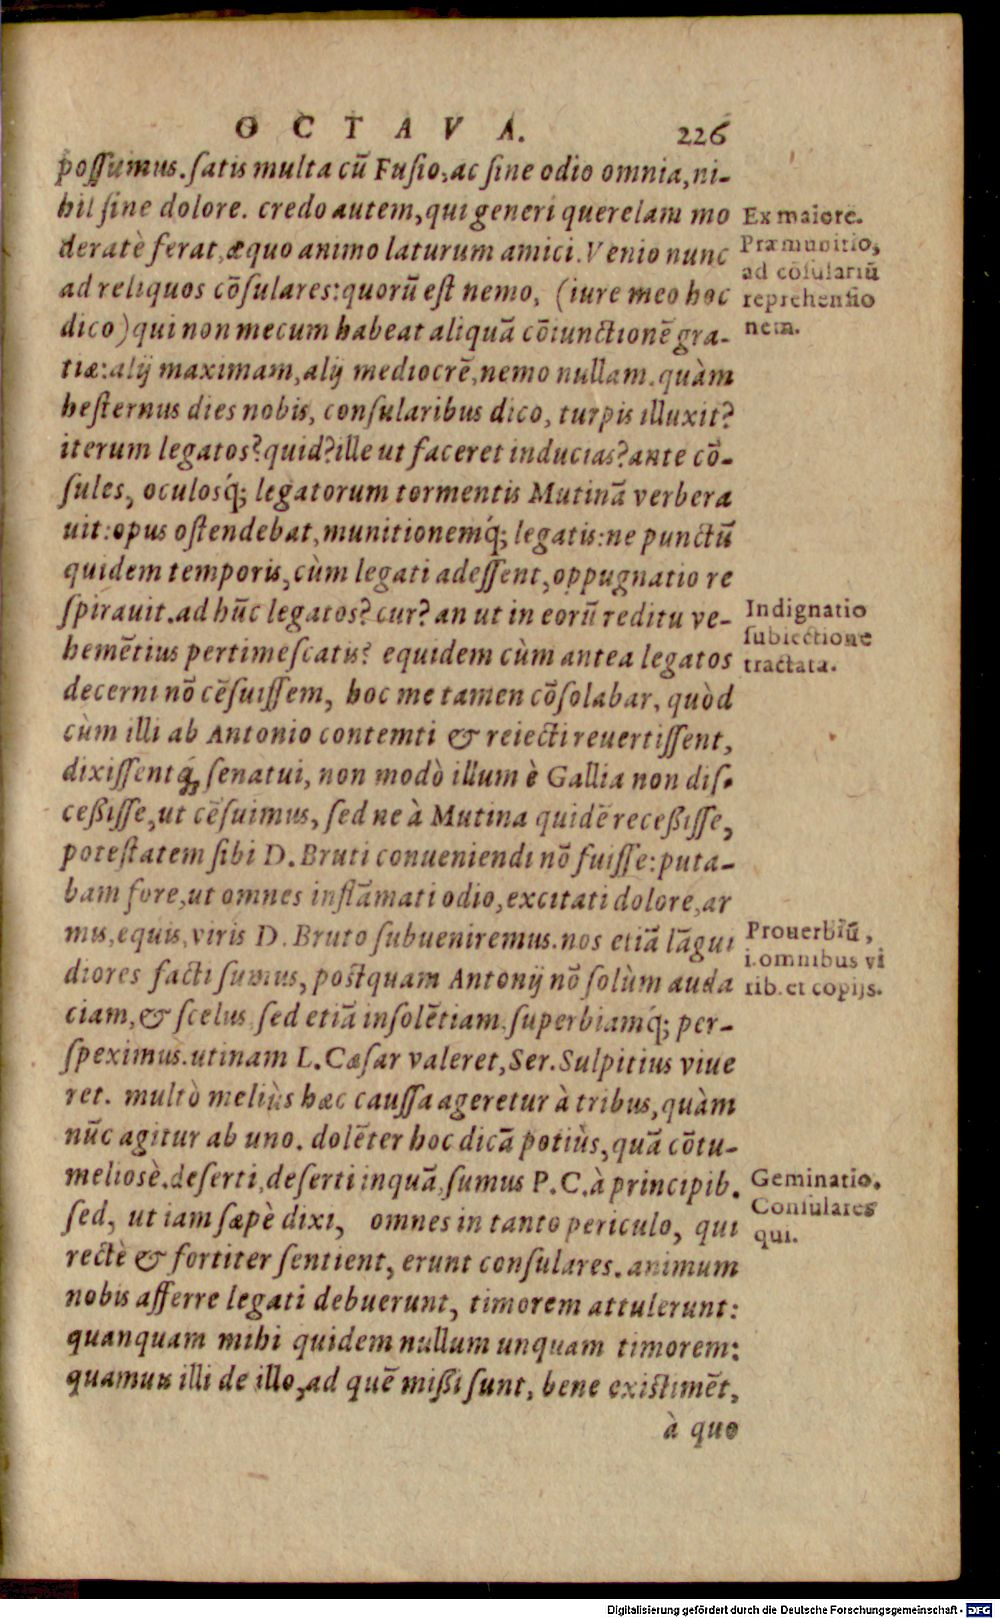 OCTAVA. 226
poſſumus. ſatis multa cũ Fuſio, ac ſine odio omnia, ni-
hil ſine dolore. credo autem, qui generi querelam mo
deratè ferat, æquo animo laturum amici. Venio nunc
ad reliquos cõſulares: quorũ eſt nemo, (iure meo hoc
dico) qui non mecum habeat aliquã cõiunctionẽ gra-
tiæ: alij maximam, alij mediocrẽ, nemo nullam. quàm
heſternus dies nobis, conſularibus dico, turpis illuxit?
iterum legatos? quid? ille ut faceret inducias? ante cõ-
ſules, oculosq́; legatorum tormentis Mutinã verbera
uit: opus oſtendebat, munitionemq́; legatis: ne punctũ
quidem temporis, cùm legati adeſſent, oppugnatio re
ſpirauit. ad hũc legatos? cur? an ut in eorũ reditu ve-
hemẽtius pertimeſcatis? equidem cùm antea legatos
decerni nõ cẽſuiſſem, hoc me tamen cõſolabar, quòd
cùm illi ab Antonio contemti & reiecti reuertiſſent,
dixiſſentq́; ſenatui, non modò illum è Gallia non diſ-
ceßiſſe, ut cẽſuimus, ſed ne à Mutina quidẽ receßiſſe,
poteſtatem ſibi D. Bruti conueniendi nõ fuiſſe: puta-
bam fore, ut omnes inflãmati odio, excitati dolore, ar
mis, equis, viris D. Bruto ſubueniremus. nos etiã lãgui
diores facti ſumus, poſtquam Antonij nõ ſolùm auda
ciam, & ſcelus, ſed etiã inſolẽtiam, ſuperbiamq́; per-
ſpeximus. utinam L. Cæſar valeret, Ser. Sulpitius viue
ret. multò meliùs hæc cauſſa ageretur à tribus, quàm
nũc agitur ab uno. dolẽter hoc dicã potiùs, quã cõtu-
melioſè. deſerti, deſerti inquã, ſumus P. C. à principib.
ſed, ut iam ſæpè dixi, omnes in tanto periculo, qui
rectè & fortiter ſentient, erunt conſulares. animum
nobis afferre legati debuerunt, timorem attulerunt:
quanquam mihi quidem nullum unquam timorem:
quamuis illi de illo, ad quẽ mißi ſunt, bene exiſtimẽt,
à quo
Ex maiore.
Præmunitio,
ad cõſulariũ
reprehenſio
nem.
Indignatio
ſubiectione
tractata.
Prouerbiũ,
i. omnibus vi
rib. et copijs.
Geminatio.
Conſulares
qui.
Digitalisierung gefördert durch die Deutsche Forschungsgemeinschaft - DFG